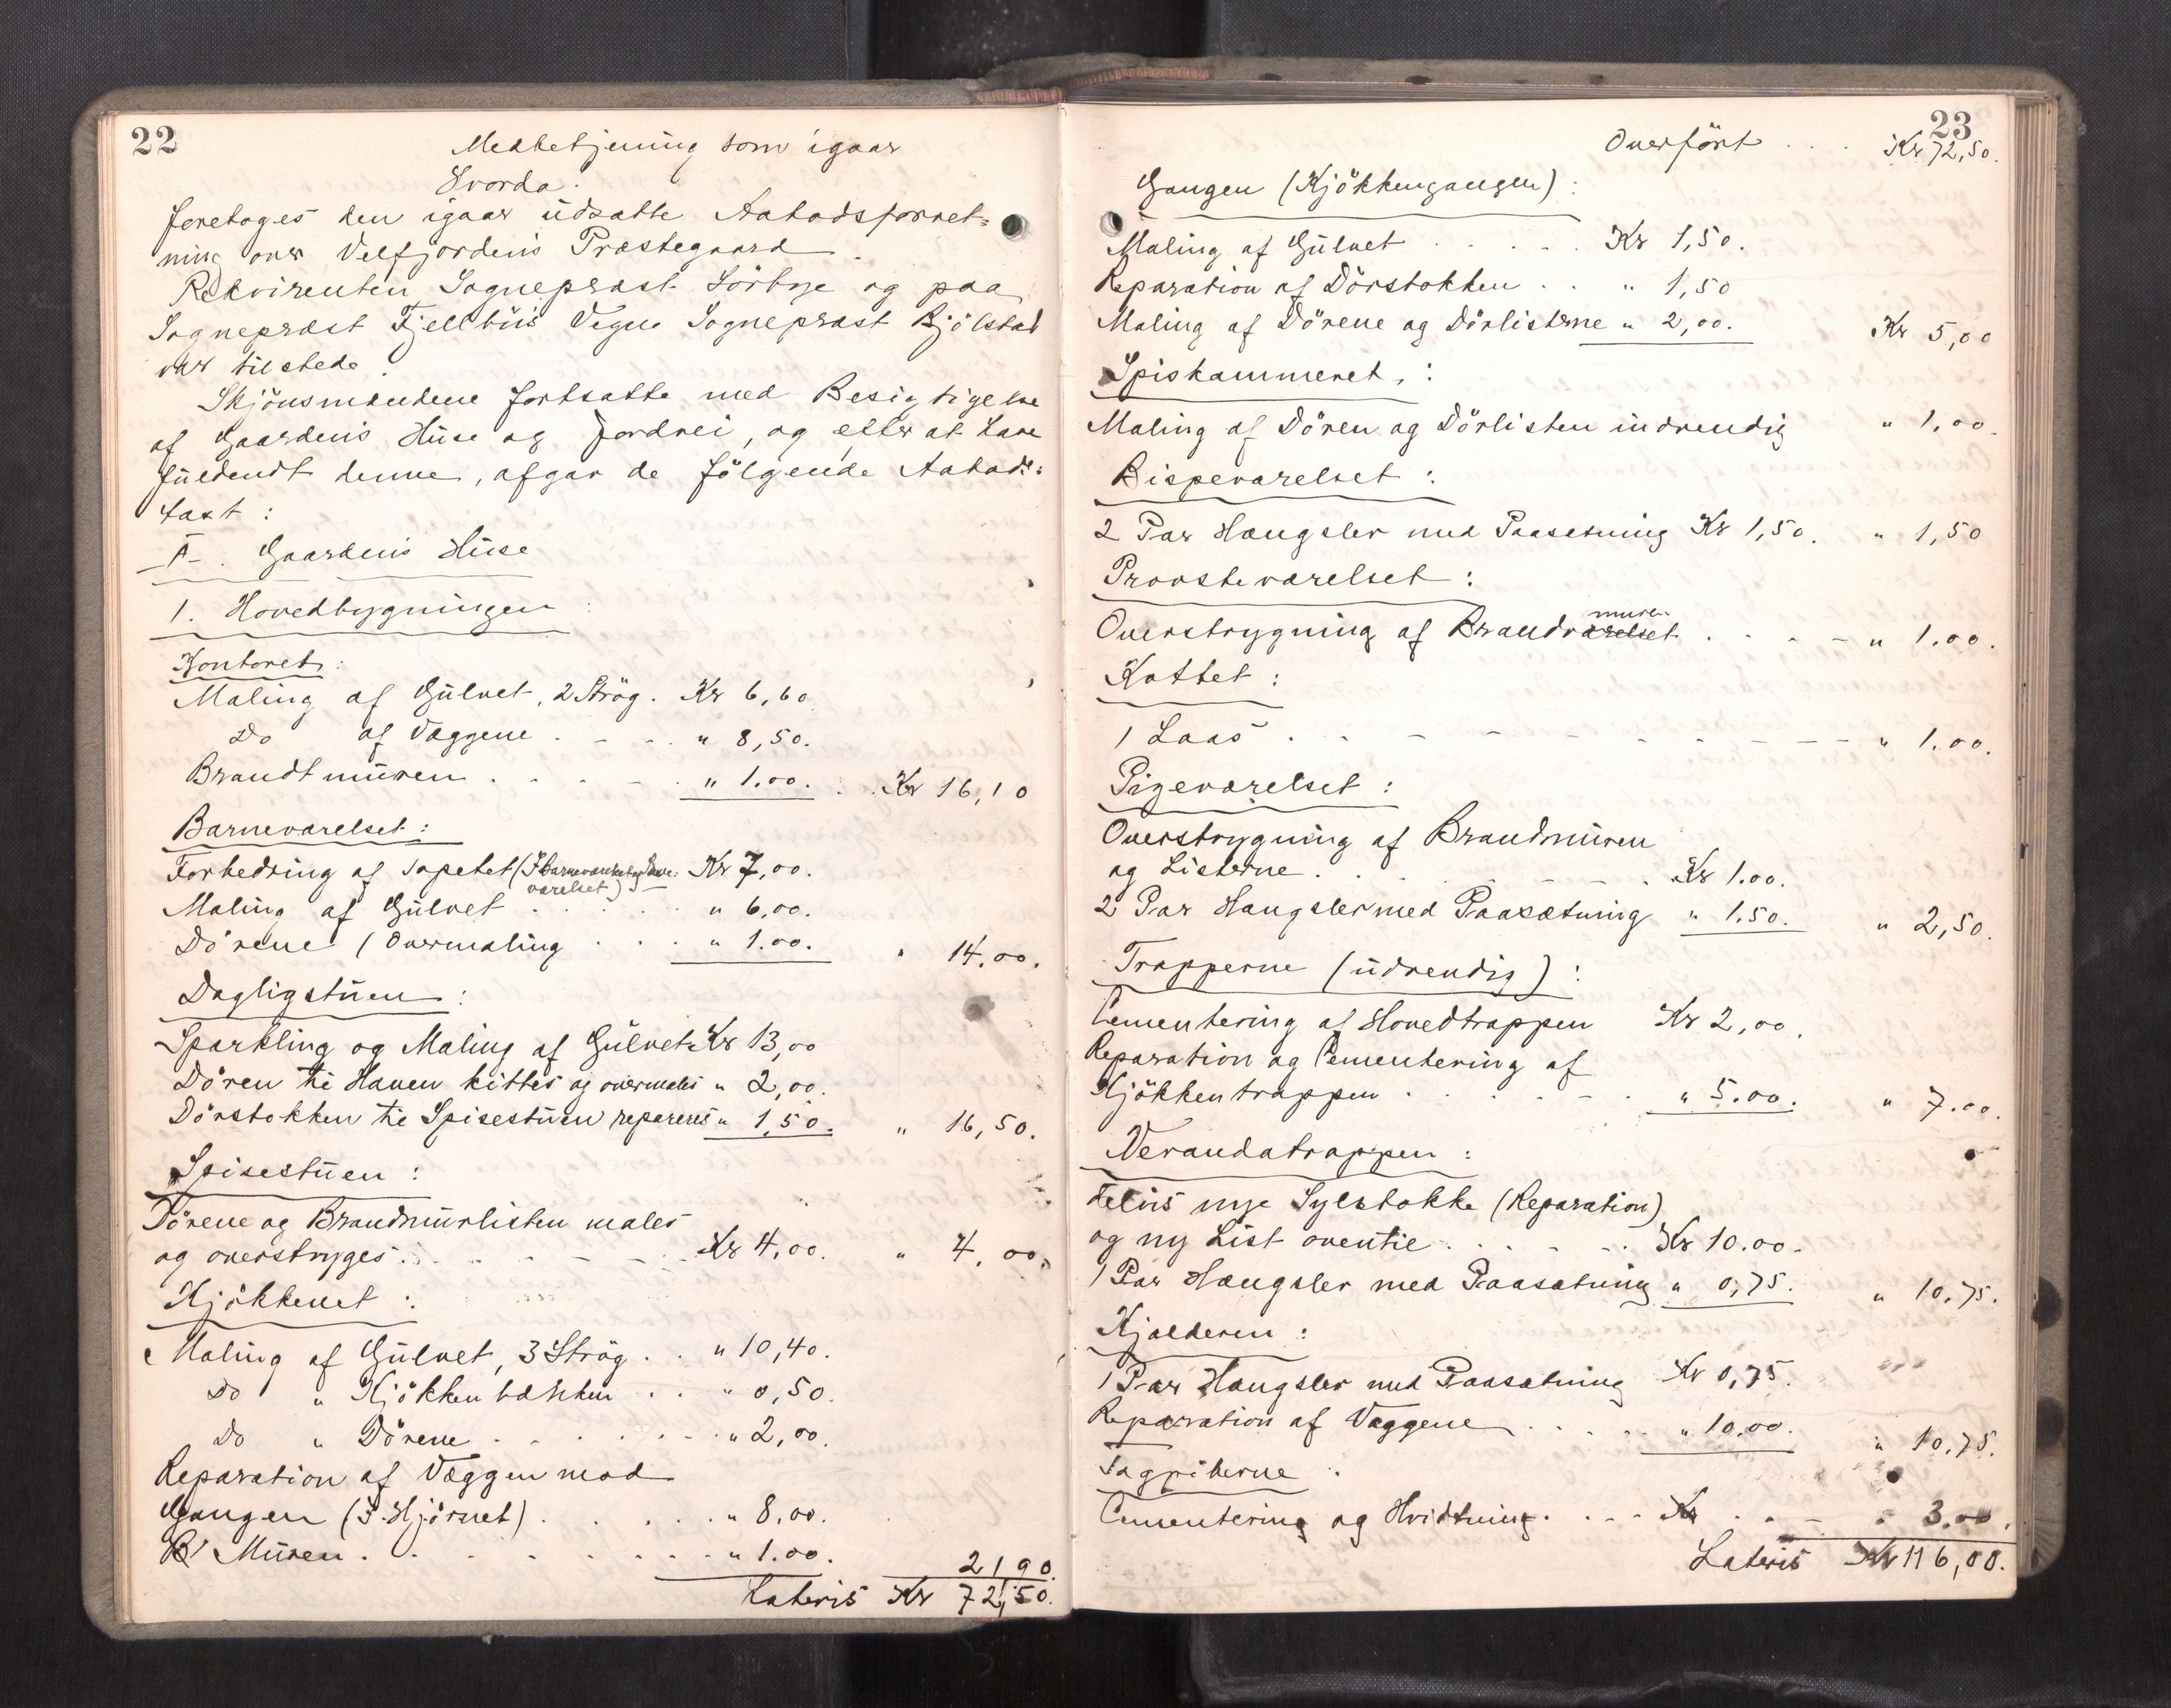 22
Medbetjening som igaar
Hvorda.
foretoges den igaar udsatte Aabodsforret-
ning over Velfjordens Præstegaard.
Rekvirenten Sogneprest Sörbye og paa
Sognepræst Fjellbüs Vegne Sogneprest Bjölstad
var tilstede.
Skjönsmændene fortsatte med Besigtigelse
af Gaardens Huse og Jordvei, og efter at have
fuldendt denne, afgav de fölgende Aabods-
taxt:
A. Gaardens Huse
1. Hovedbygningen:
Kontoret:
Maling af Gulvet, 2 Strög. Kr 6,60
Do af Væggene . - - . " 8,50.
Brandtmuren . . . . . " 1.00. . Kr 16,10
Barneværelset:
Forbedring af Tapetet (I Barneværelset og
værelset) Kr 7,00.
Maling af Gulvet . . . . . " 6,00.
Dörene (Overmaling . . . " 1.00. " 14.00.
Dagligstuen:
Sparkling og Maling af Gulvet Kr 13,00
Dören til Haven kittes og overmales " 2,00.
Dörstokken til Spisestuen repareres " 1,50. " 16,50.
Spisestuen:
Dörene og Brandmurlisten males
og overstryges . . - - - - . Kr 4,00. " 4,00.
Kjökkenet:
Maling af Gulvet, 3 Strög . . " 10,40.
Do " Kjökkenbænken . . " 0,50.
Do " Dörene . . . . . . " 2,00.
Reparation af Væggen mod
Gangen (i Hjörnet) . . . . . " 8,00.
B Muren . . . . . . . . " 1.00. 21 90.
Lateris Kr 72,50.
23
Overfört . . . Kr 72,50.
Gangen (Kjökkengangen):
Maling af Gulvet . . . . . Kr 1,50.
Reparation af Dörstokken . . " 1,50
Maling af Dörene og Dörlisterne " 2,00. Kr 5,00
Spiskammeret,:
Maling af Dören og Dörlisten indvendig " 1,00.
Bispeværelset:
2 Par Hængsler med Paasetning Kr 1,50. " 1,50
Provsteværelset:
muren
Overstrygning af Brandværelset . . . . " 1.00.
Kottet:
1 Laas . . - - - - - - - - " 1.00.
Pigeværelset:
Overstrygning af Brandmuren
og Listerne . . . . . . . Kr 1.00.
2 Par Hængsler med Paasætning " 1.50. " 2,50.
Trapperne (udvendig):
Cementering af Hovedtrappen Kr 2,00.
Reparation og Cementering af
Kjökkentrappen . . . . . . " 5.00. " 7.00.
Verandatrappen:
nye Sylstokke (Reparation)
og ny List oventil . . . . . . Kr 10.00.
1 Par Hængsler med Paasætning " 0,75. " 10,75.
Kjælderen:
1 Par Hængsler med Paasætning Kr 0,75.
Reparation af Væggene . . . . . " 10,00. " 10,75.
Tagpiberne:
Cementering og Hvidtning . . . - Kr . . - " 3.00.
Lateris Kr 116,00.